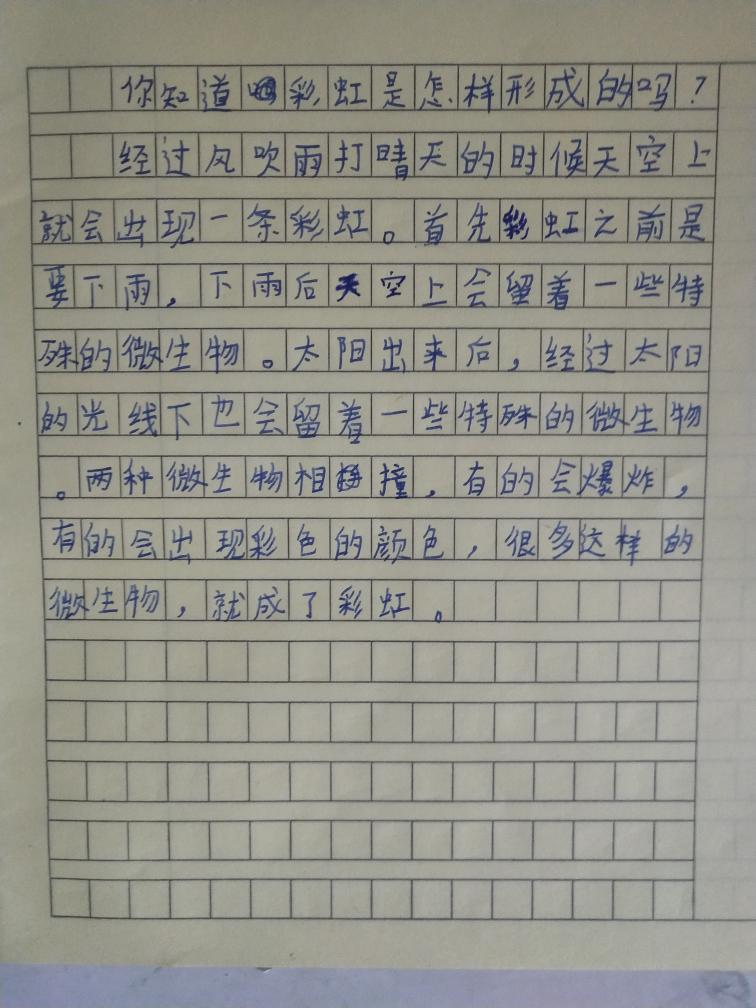 你知道彩虹是怎样形成的吗？
经过风吹雨打晴天的时候天空上
就会出现一条彩虹。首先彩虹之前是
要下雨，下雨后天空上会留着一些特
殊的微生物。太阳出来后，经过太阳
的光线下也会留着一些特殊的微生物
。两种微生物相撞，有的会爆炸，
有的会出现彩色的颜色，很多这样的
微生物，就成了彩虹。